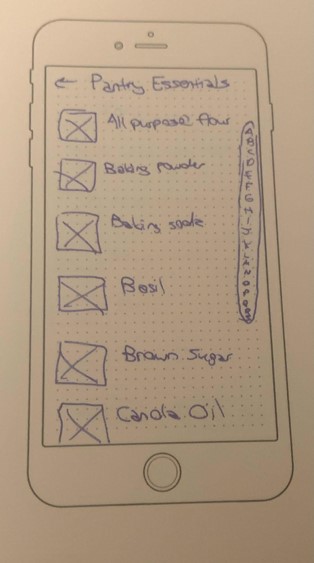 ← Pantry Essentials
All purpose flour
Baking powder
Baking soda
Basil
Brown Sugar
Canola Oil
A
B
C
D
E
F
G
H
I
J
K
L